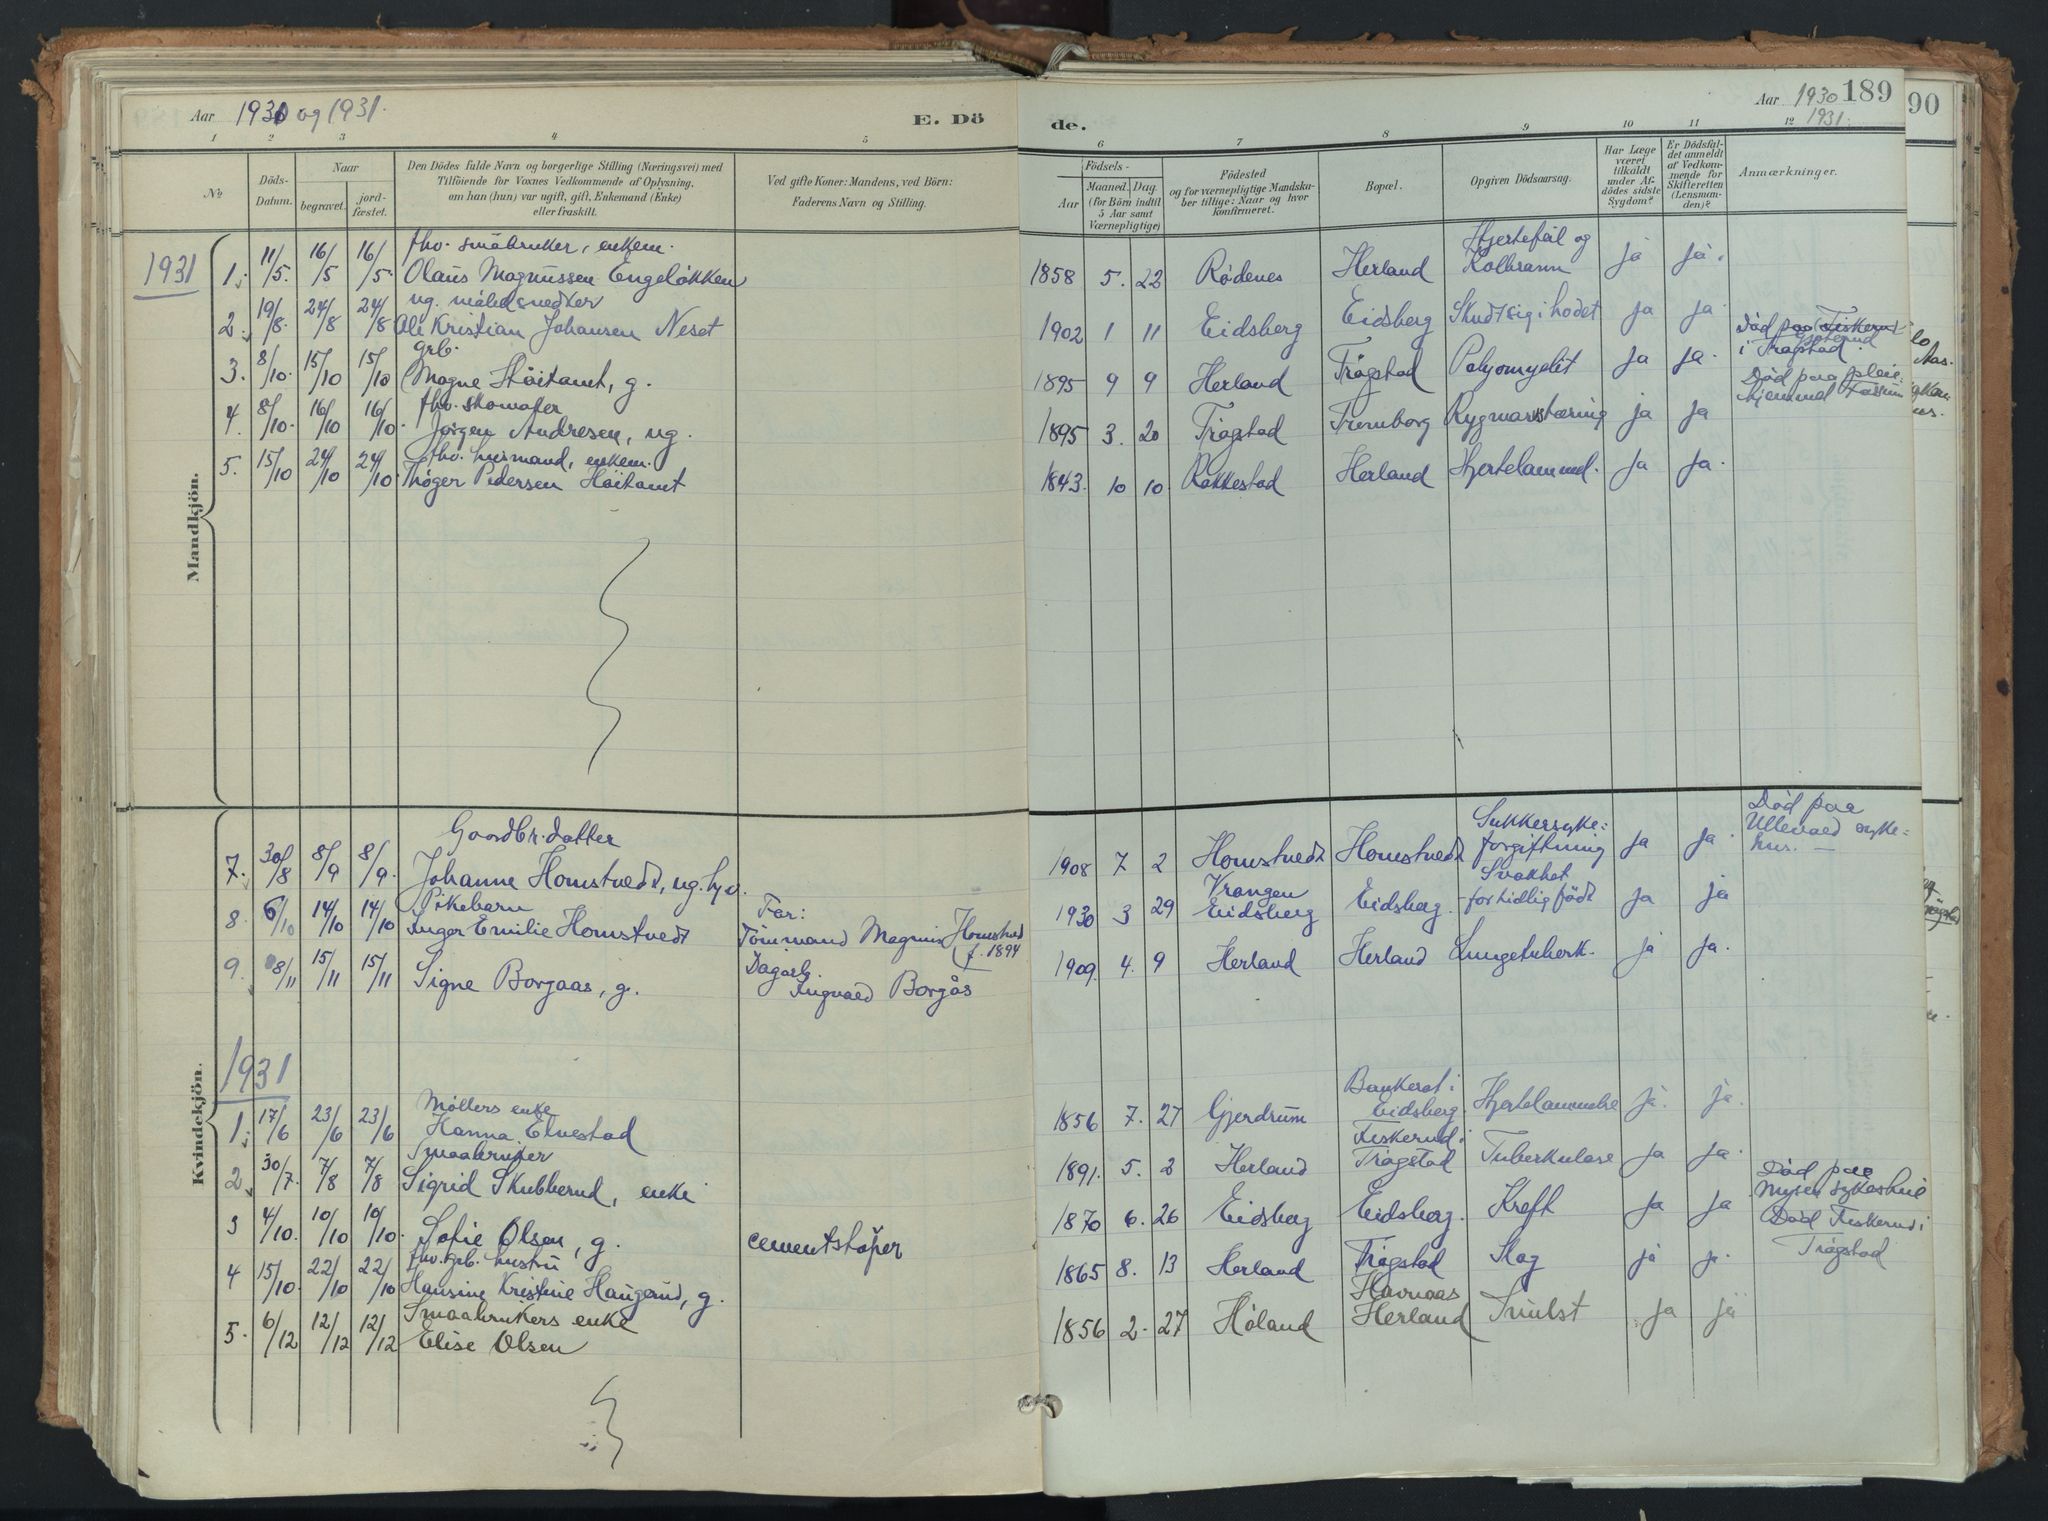 Aar 1930 og 1931.
E. Dö
de.
Aar 1930 189
1931.
90
1 2 3 4 5 6 7 8 9 10 11 12
No.
Döds-Datum.
Naar
begravet.
jord-fæstet.
Den Dödes fulde Navn og borgerlige Stilling (Næringsvei) med
Tilföiende for Voxnes Vedkommende af Oplysning,
om han (hun) var ugift, gift, Enkemand (Enke)
eller fraskilt.
Ved gifte Koner: Mandens, ved Börn:
Faderens Navn og Stilling.
Födsels-
Aar
Maaned. Dag.
(for Börn indtil
5 Aar samt
Værnepligtige)
Födested
og for værnepligtige Mandska-
ber tillige: Naar og hvor
konfirmeret.
Bopæl.
Opgiven Dödsaarsag.
Har Læge
været
tilkaldt
under Af-
dødes sidste
Sygdom?
Er Dödsfal-
det anmeldt
af Vedkom-
mende for
Skifteretten
(Lensman-
den)?
Anmærkninger.
Mandkjön.
1931
fhv. småbruker, enkem. Hjertefeil og
1. 11/5. 16/5 16/5. Olaus Magnussen Engeløkken 1858 5. 22 Rødenes Herland Kolbrann ja ja.
ug. møbelsnedker
2. 19/8. 24/8 24/8 Ole Kristian Johansen Neset 1902 1 11 Eidsberg Eidsberg Skudt sig i hodet ja ja
Død paa Fiskerud
i Trøgstad.
grb.
3. 8/10. 15/10 15/10 Magne Høitomt, g. 1895 9 9 Herland Trøgstad Polyomyelit ja ja.
Død paa pleie-
hjemmet
fhv. skomaker
4. 8/10. 16/10 16/10. Jørgen Andresen, ug. 1895 3. 20 Trøgstad Tromborg Rygmarvstæring ja ja
fhv. husmand, enkem.
5. 15/10 24/10 24/10. Thøger Pedersen Høitomt 1843. 10 10. Rakkestad Herland Hjertelammel. ja ja.
Kvindekjön.
Gaardbr. datter Sukkersyke=
7. 30/8 8/9 8/9. Johanne Homstvedt, ug. 1908 7 2 Homstvedt Homstvedt forgiftning ja ja
Død paa
Ullevaal syke=
hus. —
Pikebarn Far: Vrangen Svakhet
8. 6/10 14/10 14/10 Inger Emilie Homstvedt Tømmand Magnus Homstved 1930 3 29 Eidsberg Eidsberg. - for tidlig født ja ja
f. 1894
9. 8/11 15/11 15/11 Signe Borgaas, g. Dagarb. Ingvald Borgås 1909. 4. 9 Herland Herland Lungetuberk. ja ja.
1931
Møllers enke
1. 17/6 23/6 23/6 Hanna Elvestad 1856 7. 27 Gjerdrum Eidsberg Hjertelammelse ja. ja.
Smaabruker Fiskerud i
2. 30/7. 7/8 7/8 Sigrid Skubberud, enke 1891. 5. 2 Herland Trøgstad Tuberkulose ja ja.
3 4/10. 10/10 10/10. Sofie Olsen, g. cementstøper 1870 6. 26 Eidsberg Eidsberg. Kreft ja ja
Død paa
Mysen sykehus
fhv. grb. hustru
4 15/10. 22/10 22/10 Hansine Kristine Haugerud, g. 1865 8. 13 Herland Trøgstad Slag ja ja.
Død Fiskerud i
Trøgstad
Smaabrukers enke Havnaas
5. 6/12 12/12 12/12 Elise Olsen 1856 2. 27 Høland Herland ja ja